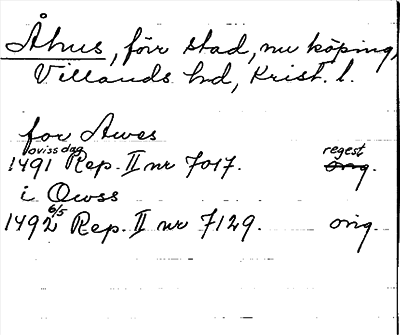 Åhus, förr stad, nu köping,
Villands hd, Krist. l.
for Awes
oviss dag
regest
1491 Rep. II nr 7017. orig.
i Owss
6/5
1492 Rep. II nr 7129. orig.